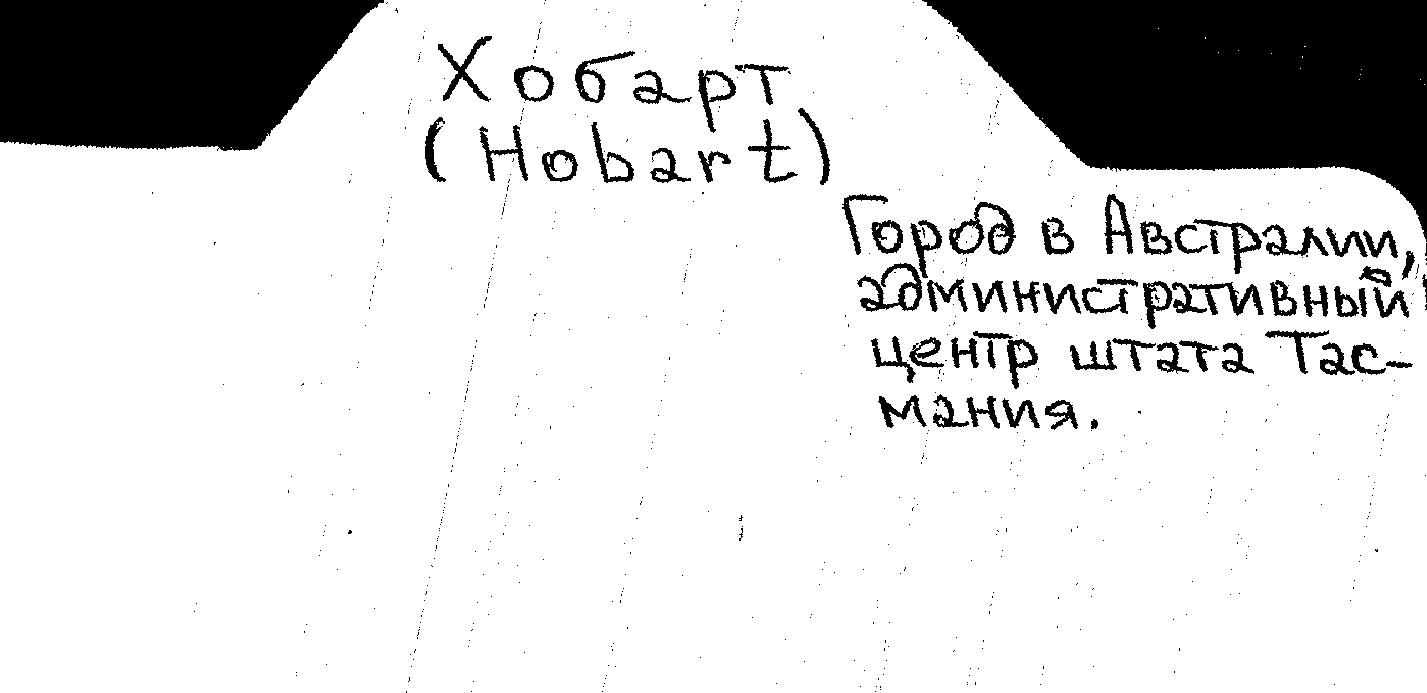 Хобарт
(Hobart)
Город в Австралии,
административный
центр штата Тас-
мания.